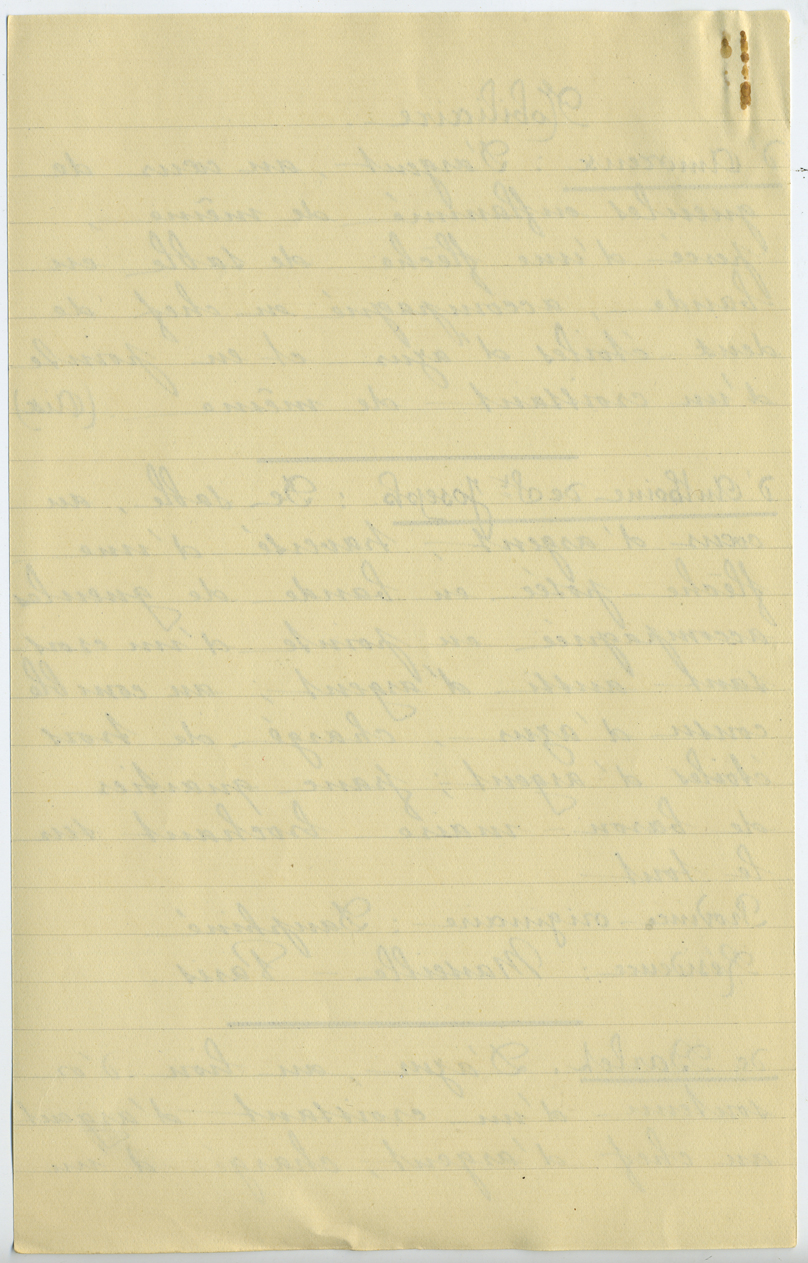 Nobiliaire
d'Amoreux : D'argent au cœur de
gueules enflammé de même,
percé d'une flèche de sable en
bande, accompagné en chef de
deux étoiles d'azur et en pointe
d'un croissant de même (Aix)
d'Anthoine de St Joseph : De sable, au
cœur d'argent, traversé d'une
flèche posée en bande de gueules
accompagné en pointe d'un crois
sant aussi d'argent, au comble
cousu d'azur, chargé de trois
étoiles d'argent ; franc quartier
de baron maire brochant sur
le tout
Province originaire : Dauphiné
Résidence : Marseille Paris
de Barlet, D'azur, au lion d'or
soutenu d'un croissant d'argent
au chef d'argent, chargé d'un